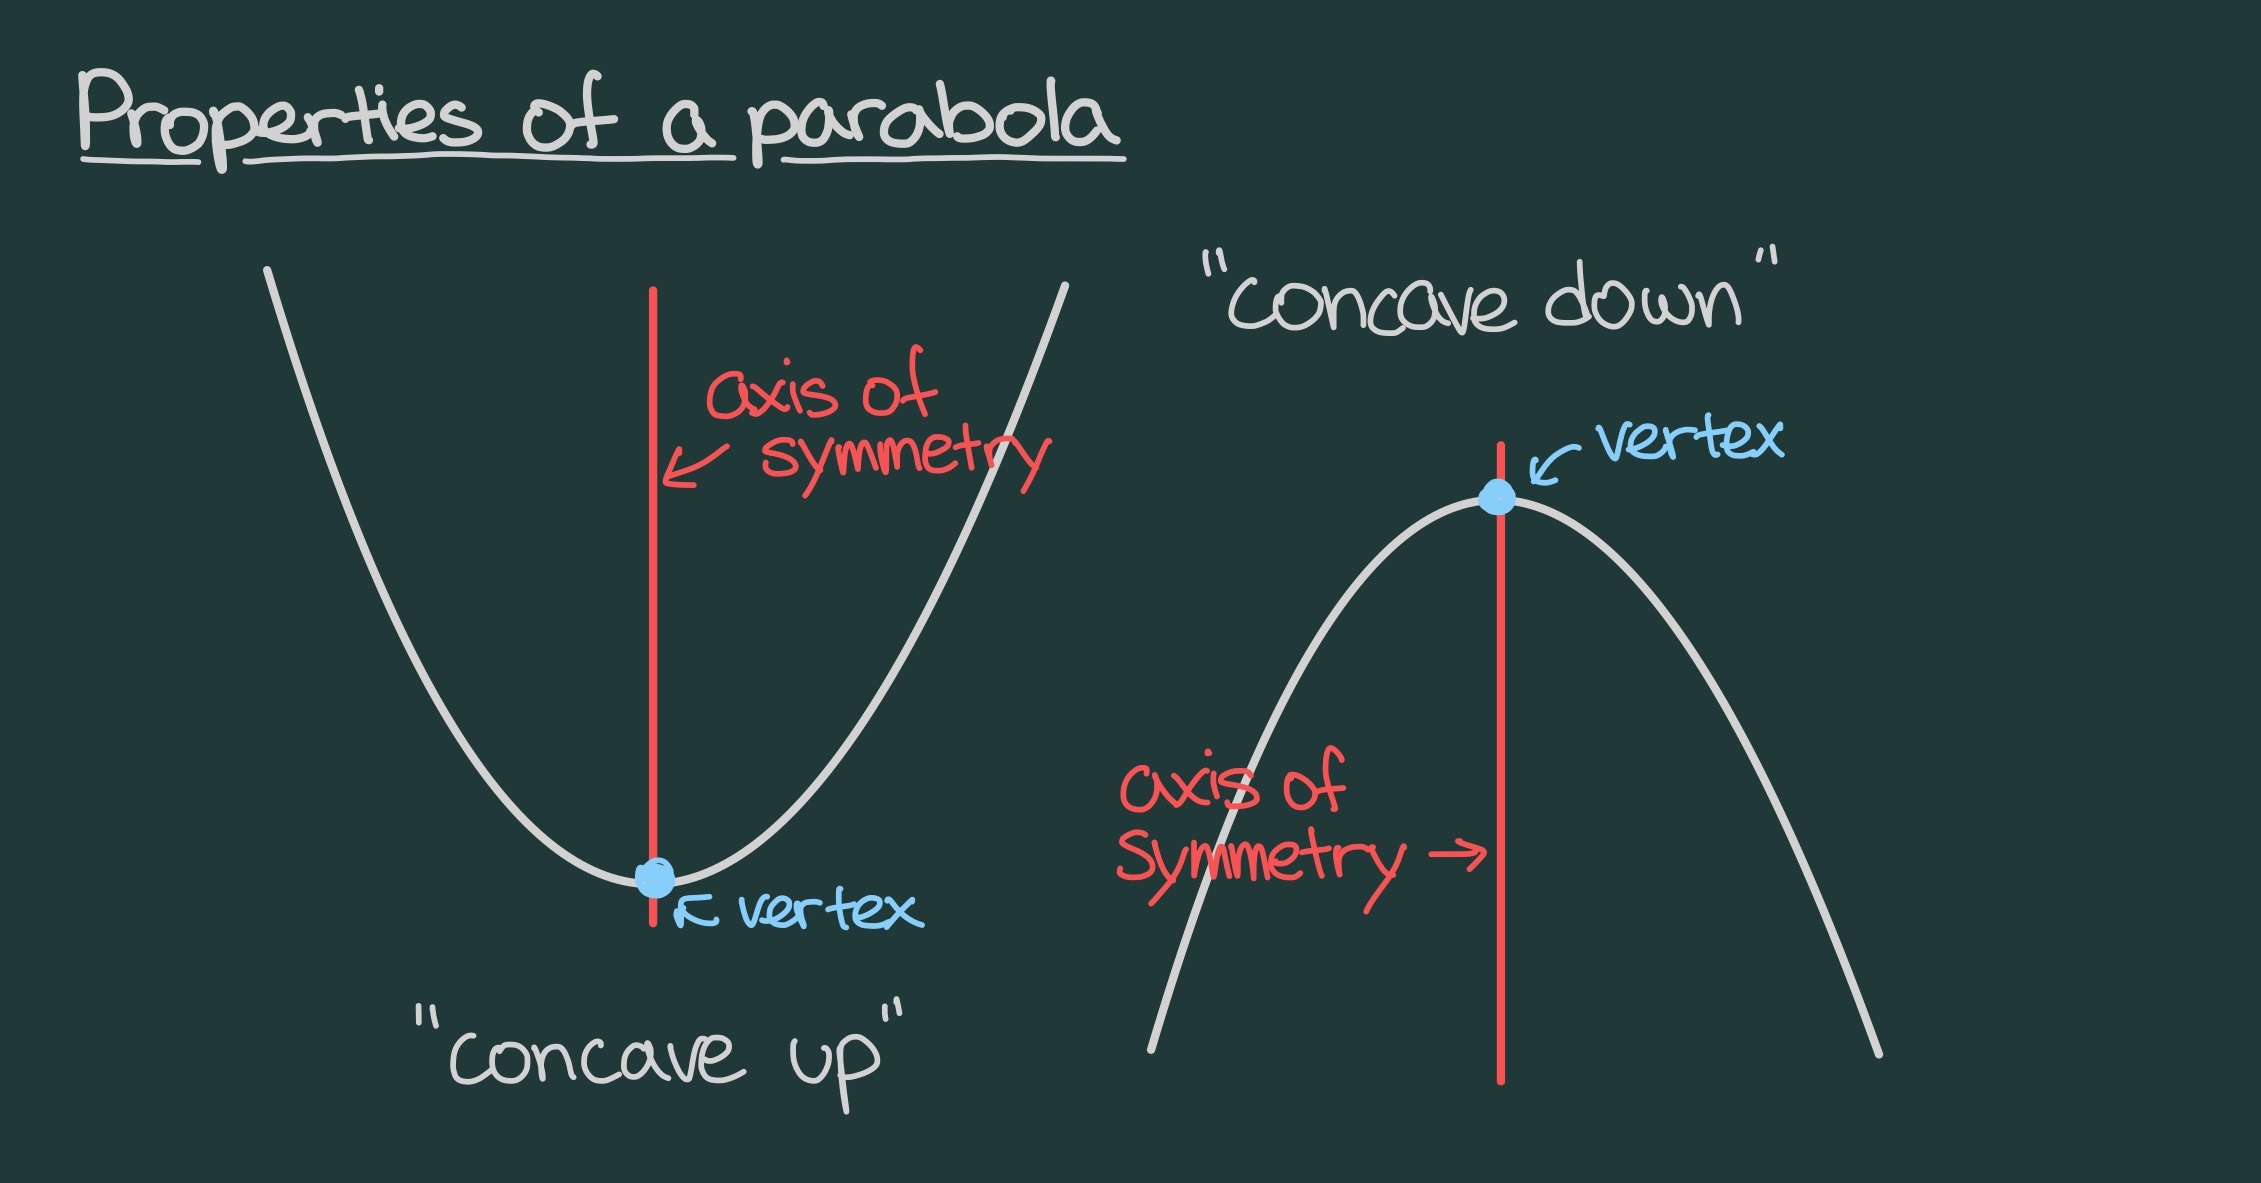 Properties of a parabola
axis of
symmetry
vertex
"concave up"
"concave down"
vertex
axis of
symmetry